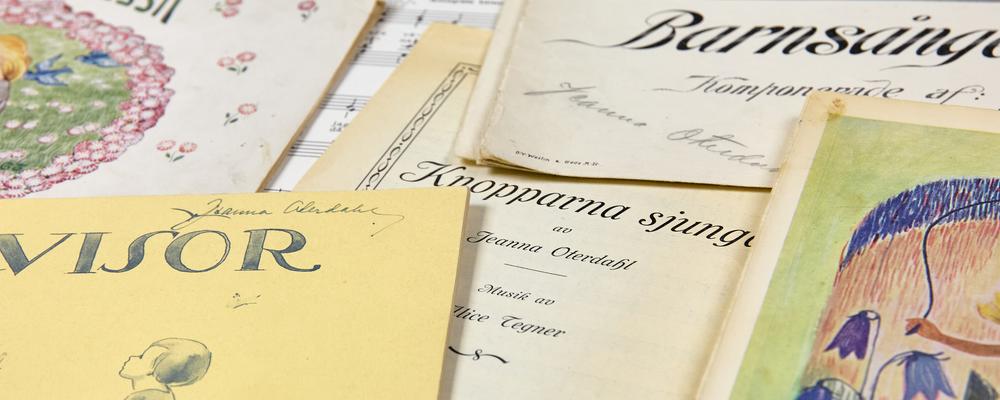 Barnsånge
Komponerade af:
Jeanna Oterdahl
Knopparna sjunga
av
Jeanna Oterdahl
Musik av
Alice Tegner
Jeanna Oterdahl
VISOR